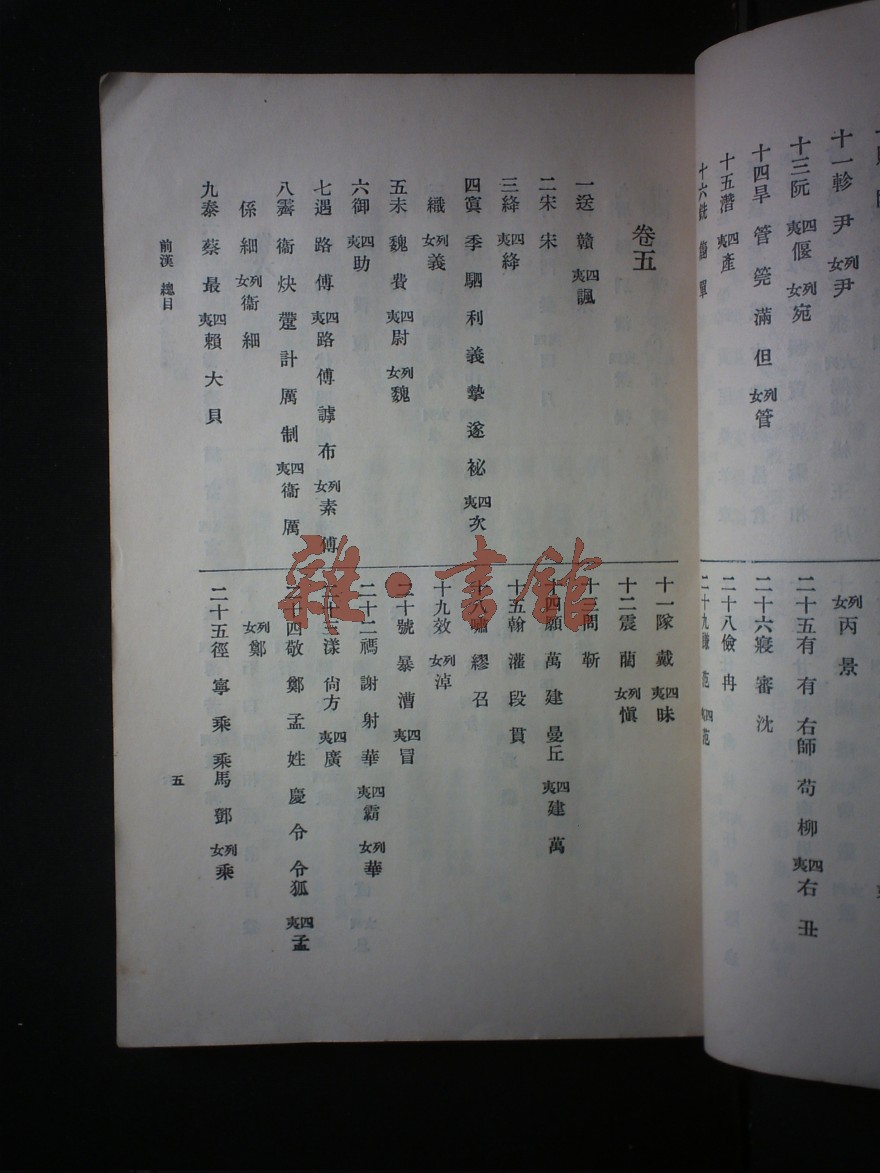 十一軫 尹 列女 尹
十三阮 四夷 偃 列女 宛
十四旱 管 筦 滿 但 列女 管
十五潸 四夷 產
十六銑 單
列女 丙 景
二十五有 有 右師 苟 柳 四夷 右 丑
二十六寢 審 沈
二十八儉 冉
二十九 范 四夷 范
卷五
一送 贛 四夷 諷
二宋 宋
三絳 四夷 絳
四寘 季 駟 利 義 摯 遂 祕 四夷 次
織 列女 義
五未 魏 費 四夷 尉 列女 魏
六御 四夷 助
七遇 路 傅 四夷 路 傅 謼 布 列女 素 傅
八霽 衞 炔 躗 計 厲 制 四夷 衞 厲
係 細 列女 衞 細
九泰 蔡 最 四夷 賴 大 貝
十一隊 戴 四夷 昧
十二震 藺 列女 愼
十三問 靳
十四願 萬 建 曼丘 四夷 建 萬
十五翰 灌 段 貫
十八嘯 繆 召
十九效 列女 淖
二十號 暴 漕 四夷 冒
二十二禡 謝 射 華 四夷 霸 列女 華
二十三漾 尙方 四夷 廣
二十四敬 鄭 孟 姓 慶 令 令狐 四夷 孟
列女 鄭
二十五徑 寧 乘 乘馬 鄧 列女 乘
前漢 總目
五
雜·書館